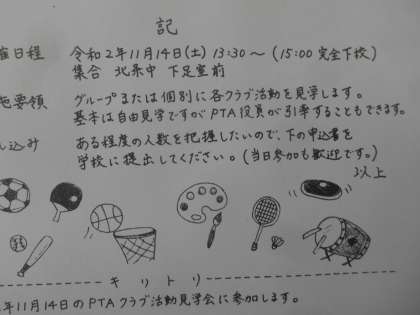 記
催日程 令和2年11月14日(土) 13:30～(15:00 完全下校)
集合 北条中 下足室前
施要領 グループまたは個別に各クラブ活動を見学します。
基本は自由見学ですが PTA役員が引率することもできます。
し込み ある程度の人数を把握したいので、下の申込書を
学校に提出してください。(当日参加も歓迎です。)
以上
キリトリ
年11月14日のPTAクラブ活動見学会に参加します。